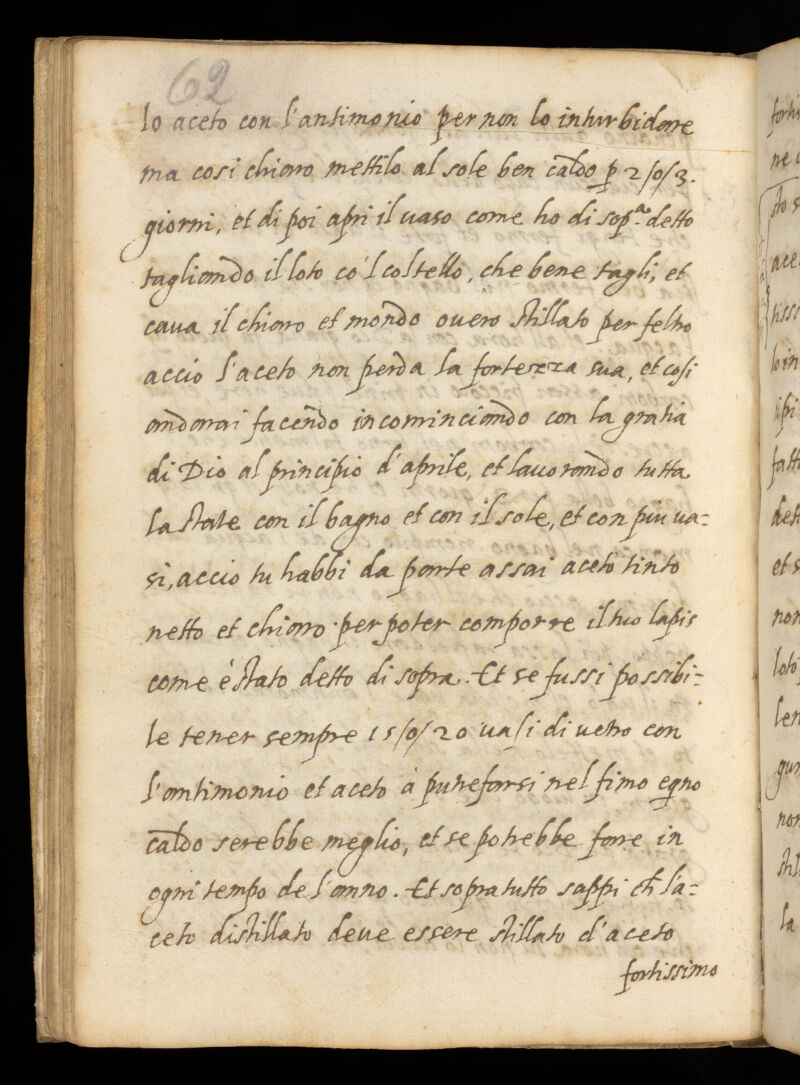 62
lo aceto con l'antimonio per non lo inturbidare
ma cosi chiaro mettilo al sole ben caldo p 2/o/3.
giorni, et di poi apri il uaso come ho di sop.ª detto
tagliando il loto co'l coltello, che bene tagli, et
caua il chiaro et mondo ouero stillato per feltro
accio l'aceto non perda la fortezza sua, et cosi
andarai facendo incominciando con la gratia
di Dio al principio d'aprile, et lauorando tutta
la state con il bagno et con il sole, et con piu ua=
si, accio tu habbi da parte assai aceto tinto
netto et chiaro per poter comporre il tuo lapis
come è stato detto di sopra. Et se fussi possibi=
le tener sempre 15/o/20 uasi di uetro con
l'antimonio et aceto à putrefarsi nel fimo eqno
caldo serebbe meglio, et se potrebbe fare in
ogni tempo de l'anno. Et sopra tutto sappi ch l'a=
ceto distillato deue essere stillato d'aceto
fortissimo